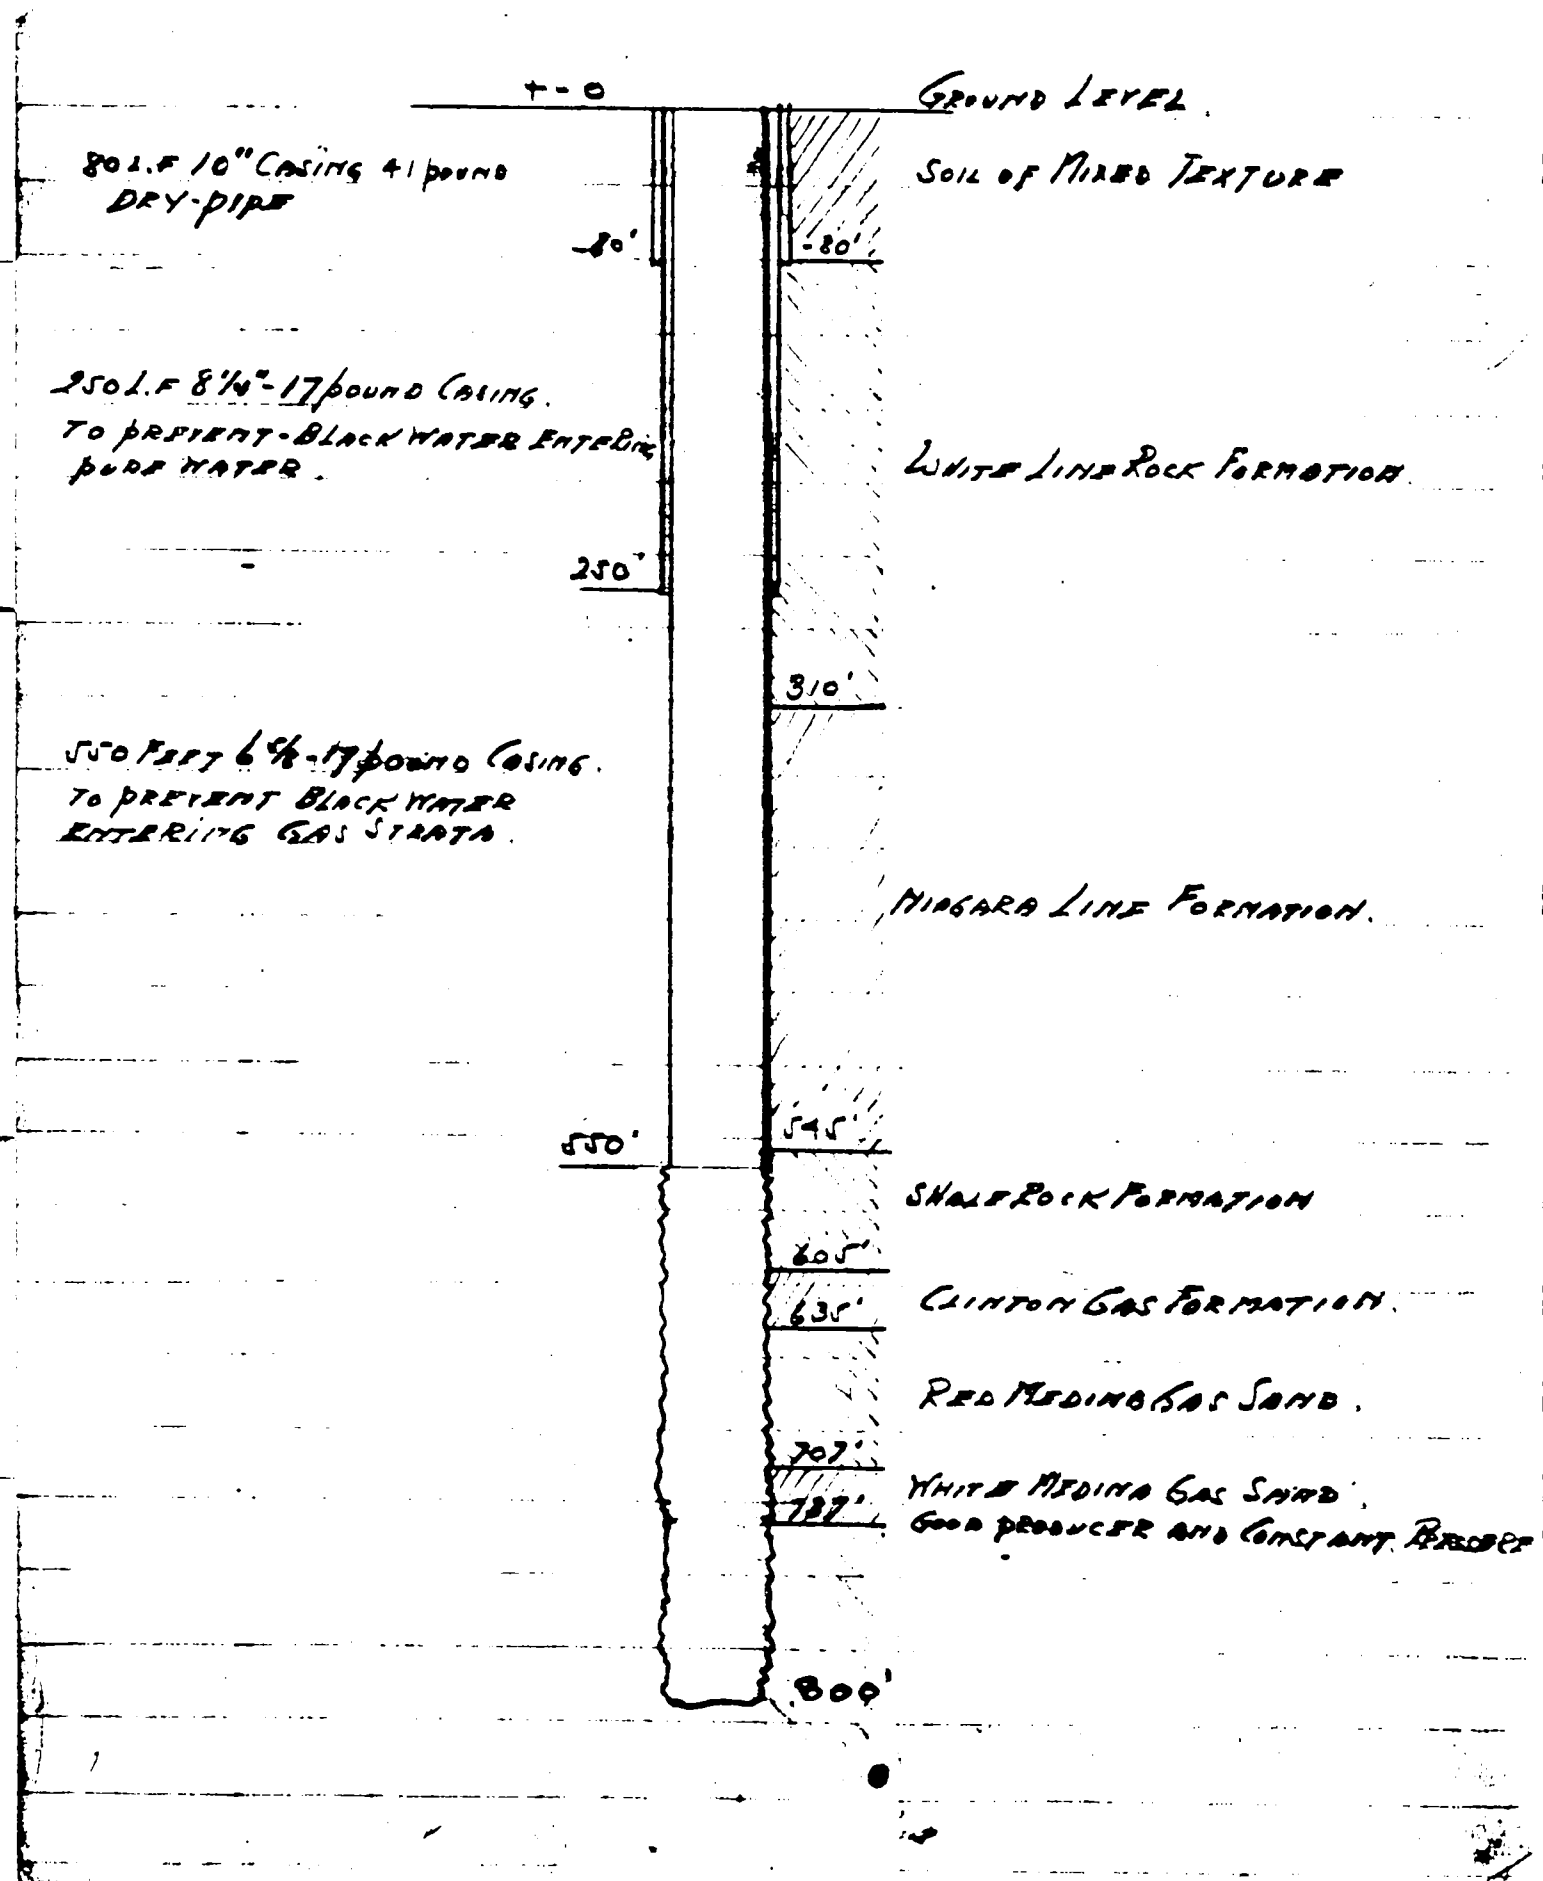 + - 0
GROUND LEVEL.
80 L.F 10" CASING 41 POUND
DRY-PIPE
SOIL OF MIXED TEXTURE
-80'
-80'
250 L.F 8 1/4"-17 POUND CASING.
TO PREVENT-BLACK WATER ENTERING
PURE WATER.
WHITE LIME ROCK FORMATION.
250'
310'
550 FEET 6 5/8-17 POUND CASING.
TO PREVENT BLACK WATER
ENTERING GAS STRATA.
NIAGARA LIME FORMATION.
545'
550'
SHALE ROCK FORMATION
605'
CLINTON GAS FORMATION.
635'
RED MEDINA GAS SAND.
707'
WHITE MEDINA GAS SAND.
GOOD PRODUCER AND CONSTANT.
800'